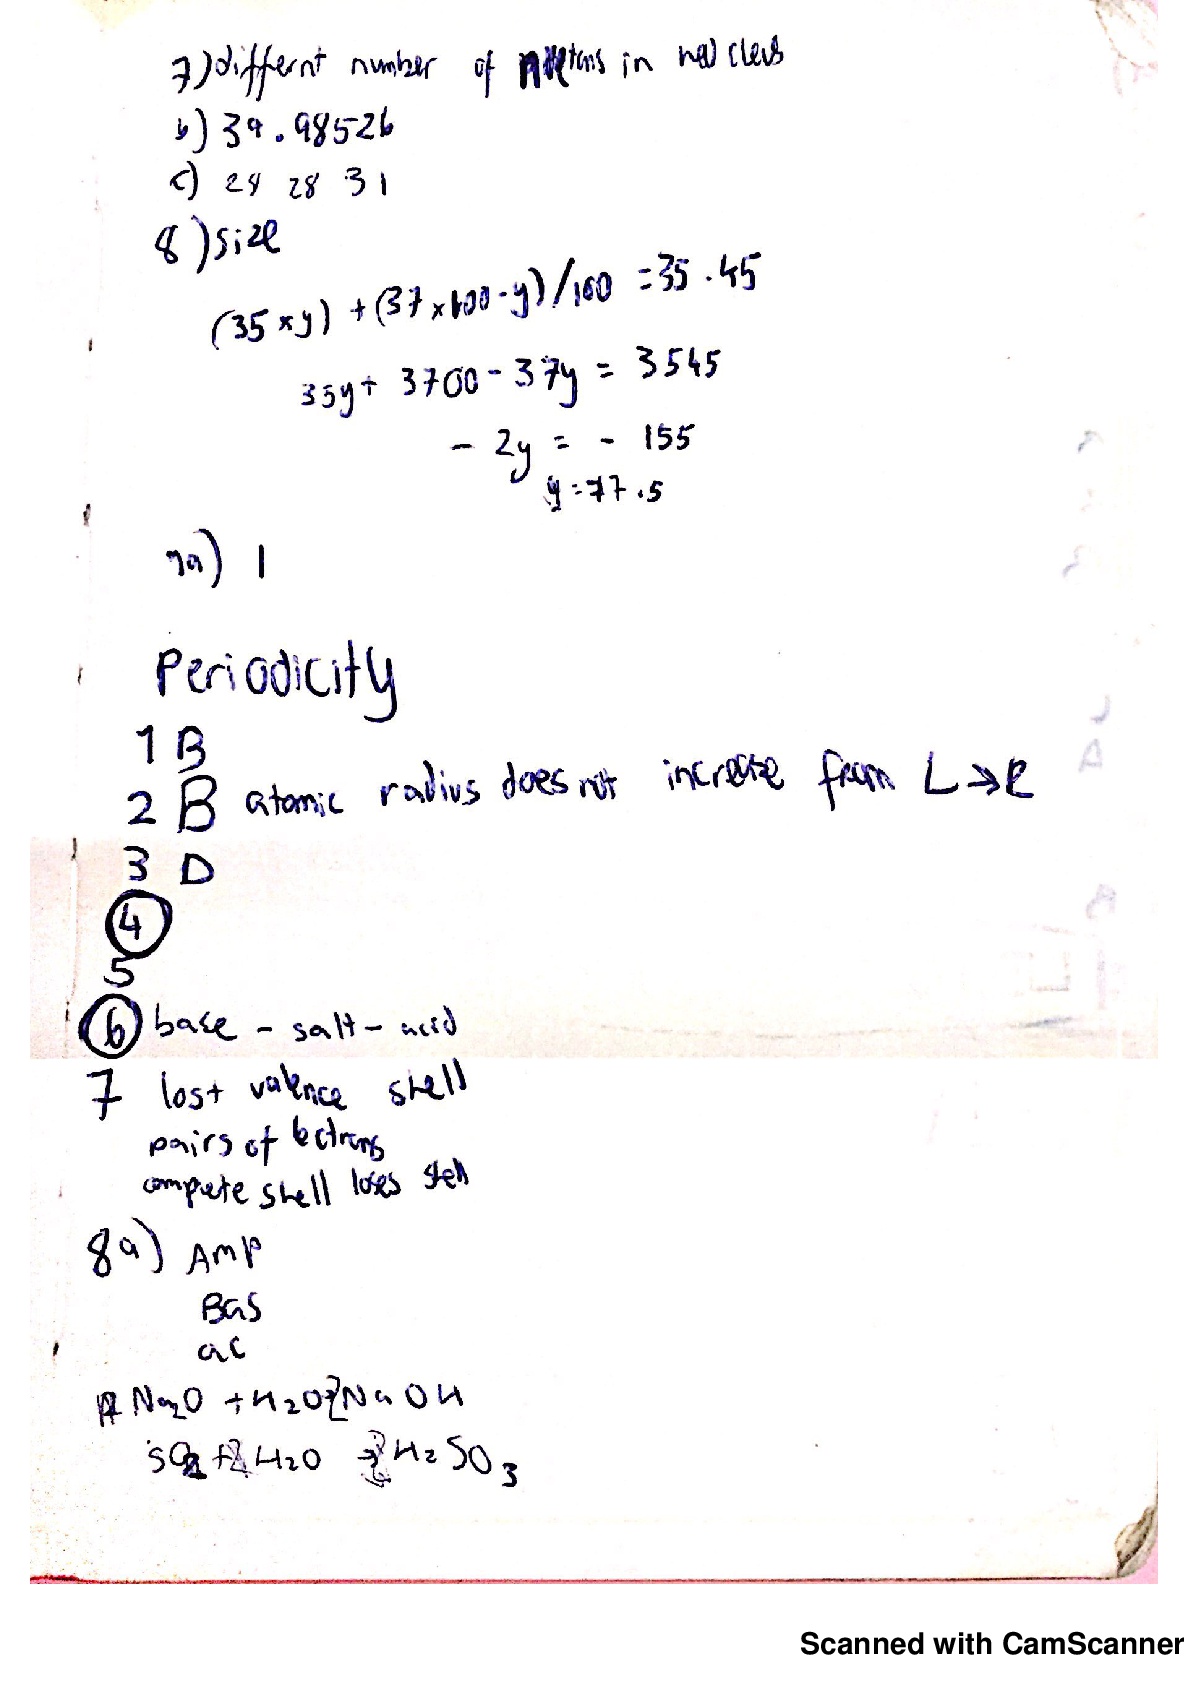 7) differnt number of in nucleus
b) 39.98526
c) 24 28 31
8) size
(35 × y) + (37 × 100 - y) / 100 = 35.45
35y + 3700 - 37y = 3545
- 2y = - 155
y = 77.5
7a) 1
Periodicity
1 B
2 B atomic radius does not increase from L → R
3 D
4
5
6 base - salt - acid
7 lost valence shell
pairs of lectrons
complete shell loses shell
8a) AMP
Bas
ac
Na2O + H2O 2NaOH
SO2 + H2O → H2SO3
Scanned with CamScanner